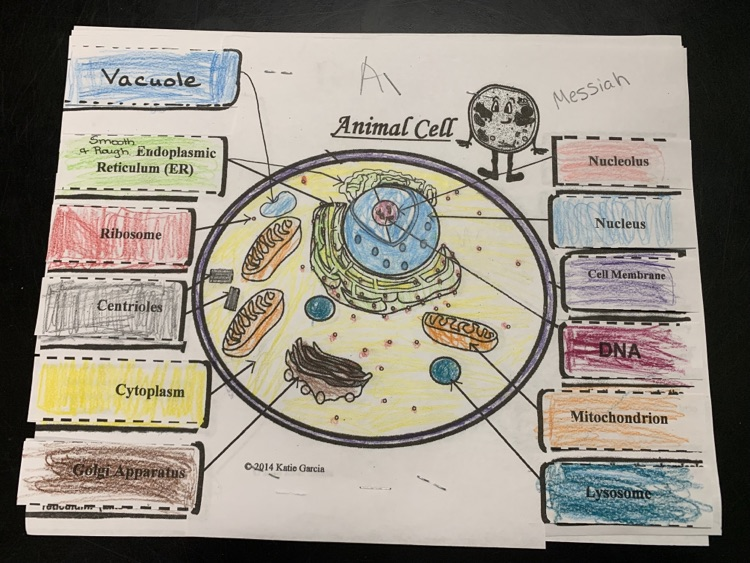 Vacuole
A
Messiah
Animal Cell
Smooth
& Rough Endoplasmic
Reticulum (ER)
Ribosome
Centrioles
Cytoplasm
Golgi Apparatus
Nucleolus
Nucleus
Cell Membrane
DNA
Mitochondrion
Lysosome
© 2014 Katie Garcia